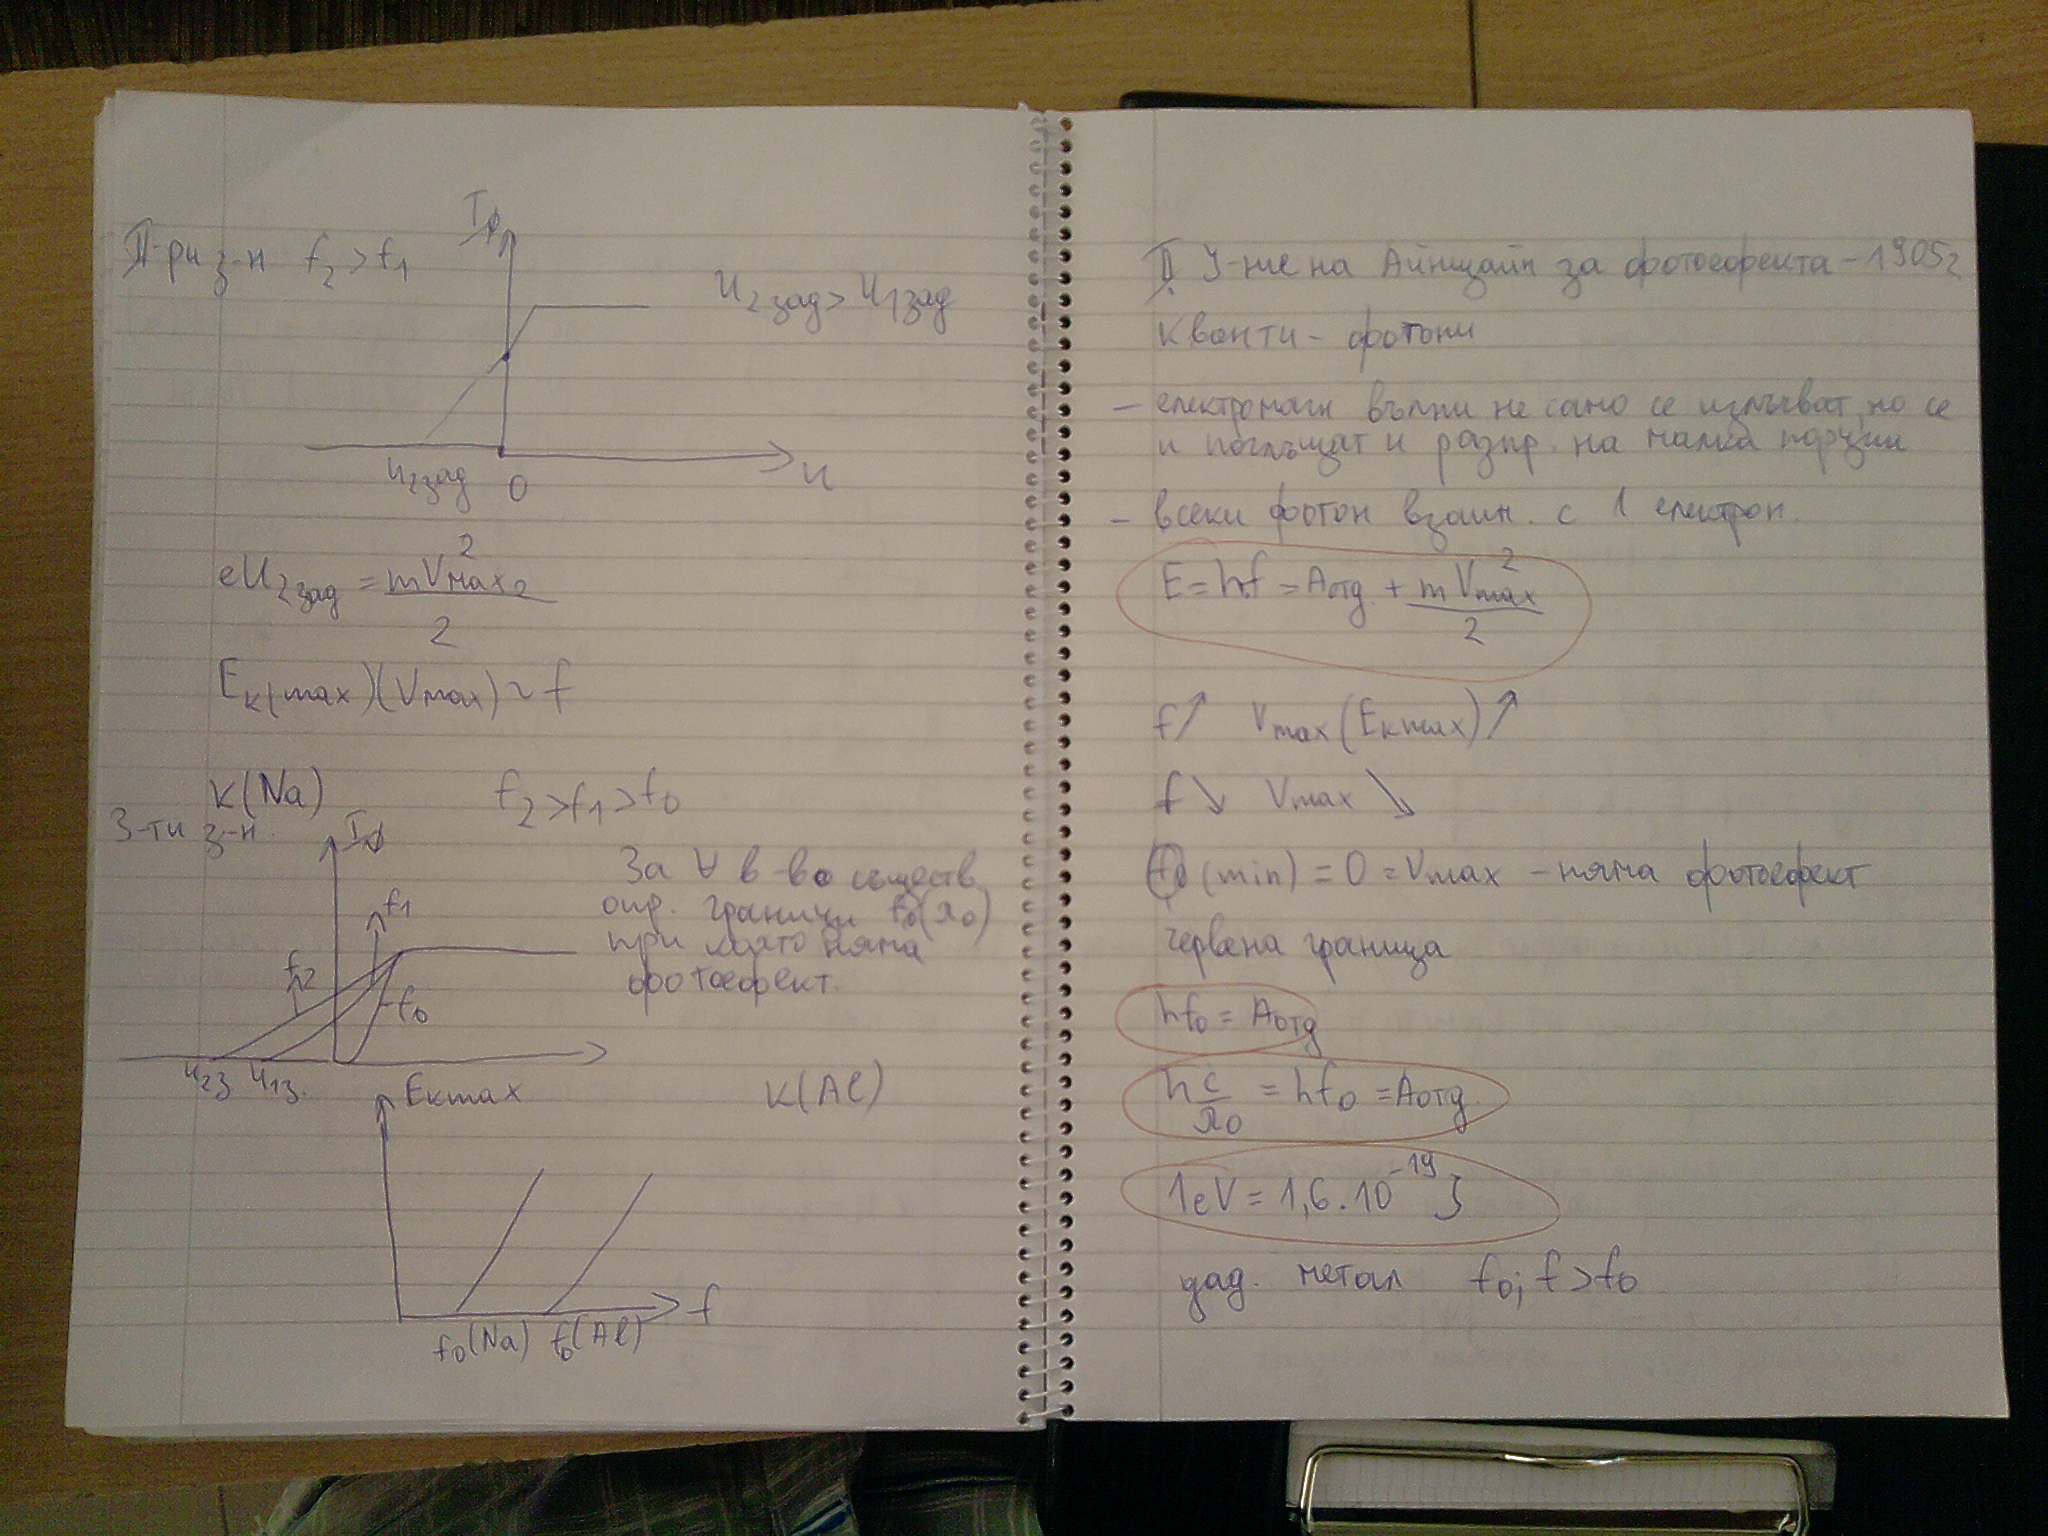 II-ри з-н f₂ > f₁
Iф
U₂зад > U₁зад
U₂зад 0 U
eU₂зад = mVmax₂² / 2
Eк(max)(Vmax) ~ f
K(Na) f₂ > f₁ > f₀
3-ти з-н.
Iф
f₁
f₂
f₀
U₂з. U₁з.
За ∀ в-во съществ.
опр. граници f₀(λ₀)
при която няма
фотоефект.
Eкmax K(Al)
f₀(Na) f₀(Al) f
II. У-ние на Айнщайн за фотоефекта - 1905г
Кванти - фотони
- електромагн вълни не само се излъчват, но се
и поглъщат и разпр. на малки порции
- всеки фотон взаим. с 1 електрон.
E = hf = Aотд. + mVmax² / 2
f↗ Vmax (Eкmax)↗
f↘ Vmax ↘
f₀ (min) = 0 = Vmax - няма фотоефект
червена граница
hf₀ = Aотд
h c/λ₀ = hf₀ = Aотд.
1eV = 1,6 . 10⁻¹⁹ J
дад. метал f₀; f > f₀